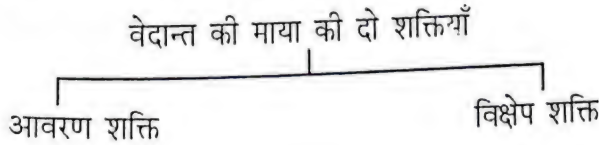 वेदान्त की माया की दो शक्तियाँ
आवरण शक्ति
विक्षेप शक्ति